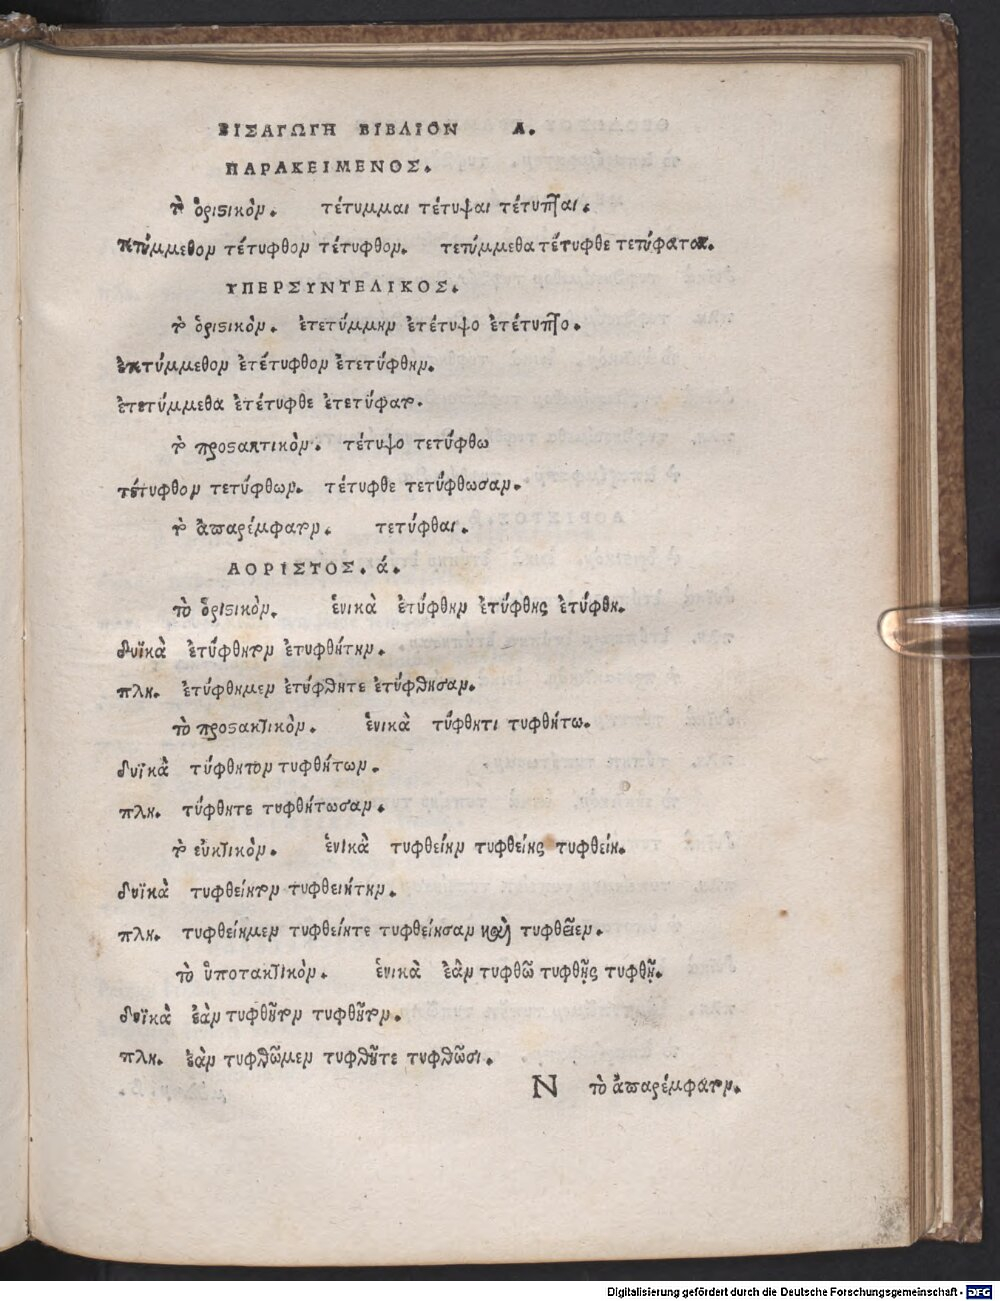 ΕΙΣΑΓΩΓΗ ΒΙΒΛΙΟΝ Α.
ΠΑΡΑΚΕΙΜΕΝΟΣ.
τὸ ὁριστικὸν. τέτυμμαι τέτυψαι τέτυπται.
τετύμμεθον τέτυφθον τέτυφθον. τετύμμεθα τέτυφθε τετύφαται.
ΥΠΕΡΣΥΝΤΕΛΙΚΟΣ.
τὸ ὁριστικὸν. ἐτετύμμην ἐτέτυψο ἐτέτυπτο.
ἐτετύμμεθον ἐτέτυφθον ἐτετύφθην.
ἐτετύμμεθα ἐτέτυφθε ἐτετύφατο.
τὸ προστακτικὸν. τέτυψο τετύφθω
τέτυφθον τετύφθων. τέτυφθε τετύφθωσαν.
τὸ ἀπαρέμφατον. τετύφθαι.
ΑΟΡΙΣΤΟΣ. ά.
τὸ ὁριστικὸν. ἑνικὰ ἐτύφθην ἐτύφθης ἐτύφθη.
δυϊκὰ ἐτύφθητον ἐτυφθήτην.
πλη. ἐτύφθημεν ἐτύφθητε ἐτύφθησαν.
τὸ προστακτικὸν. ἑνικὰ τύφθητι τυφθήτω.
δυϊκὰ τύφθητον τυφθήτων.
πλη. τύφθητε τυφθήτωσαν.
τὸ εὐκτικὸν. ἑνικὰ τυφθείην τυφθείης τυφθείη.
δυϊκὰ τυφθείητον τυφθειήτην.
πλη. τυφθείημεν τυφθείητε τυφθείησαν καὶ τυφθεῖεν.
τὸ ὑποτακτικὸν. ἑνικὰ ἐὰν τυφθῶ τυφθῇς τυφθῇ.
δυϊκὰ ἐὰν τυφθῆτον τυφθῆτον.
πλη. ἐὰν τυφθῶμεν τυφθῆτε τυφθῶσι.
N τὸ ἀπαρέμφατον.
Digitalisierung gefördert durch die Deutsche Forschungsgemeinschaft - DFG